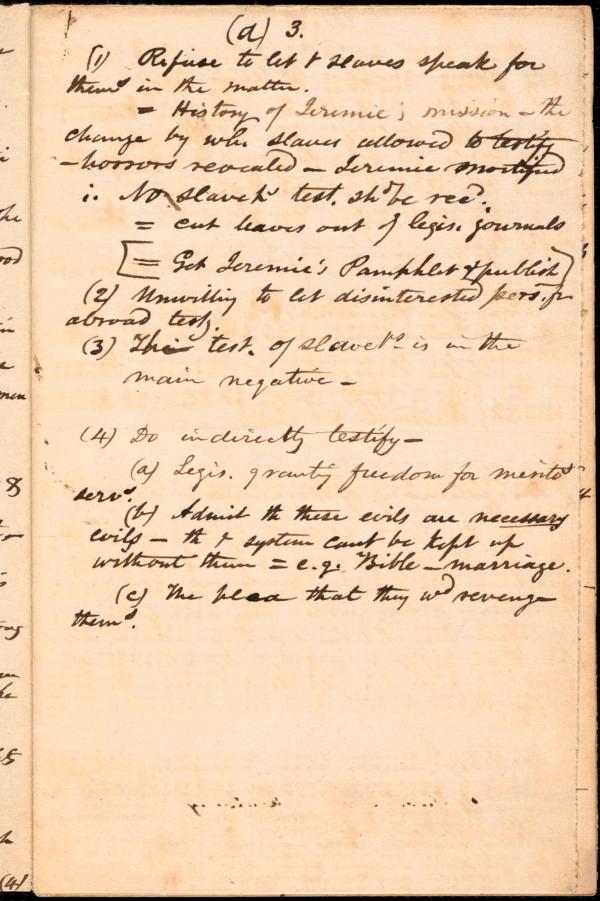 (d) 3.
(1) Refuse to let t slaves speak for
thems in the matter.
= History of Jeremie's mission - the
change by whh slaves allowed to testify
- horrors revealed - Jeremie mortified
i. No slavehs test. shd be recd.
= cut leaves out of legis. journals
[= Get Jeremie's Pamphlet & publish]
(2) Unwilling to let disinterested pers. fr
abroad testy.
(3) The test. of slavehs is in the
main negative -
(4) Do indirectly testify -
(a) Legis. granting freedom for meritos
servs.
(b) Admit th these evils are necessary
evils - th t system cant be kept up
without them = e.g. Bible - marriage.
(c) The plea that they wd revenge
thems.